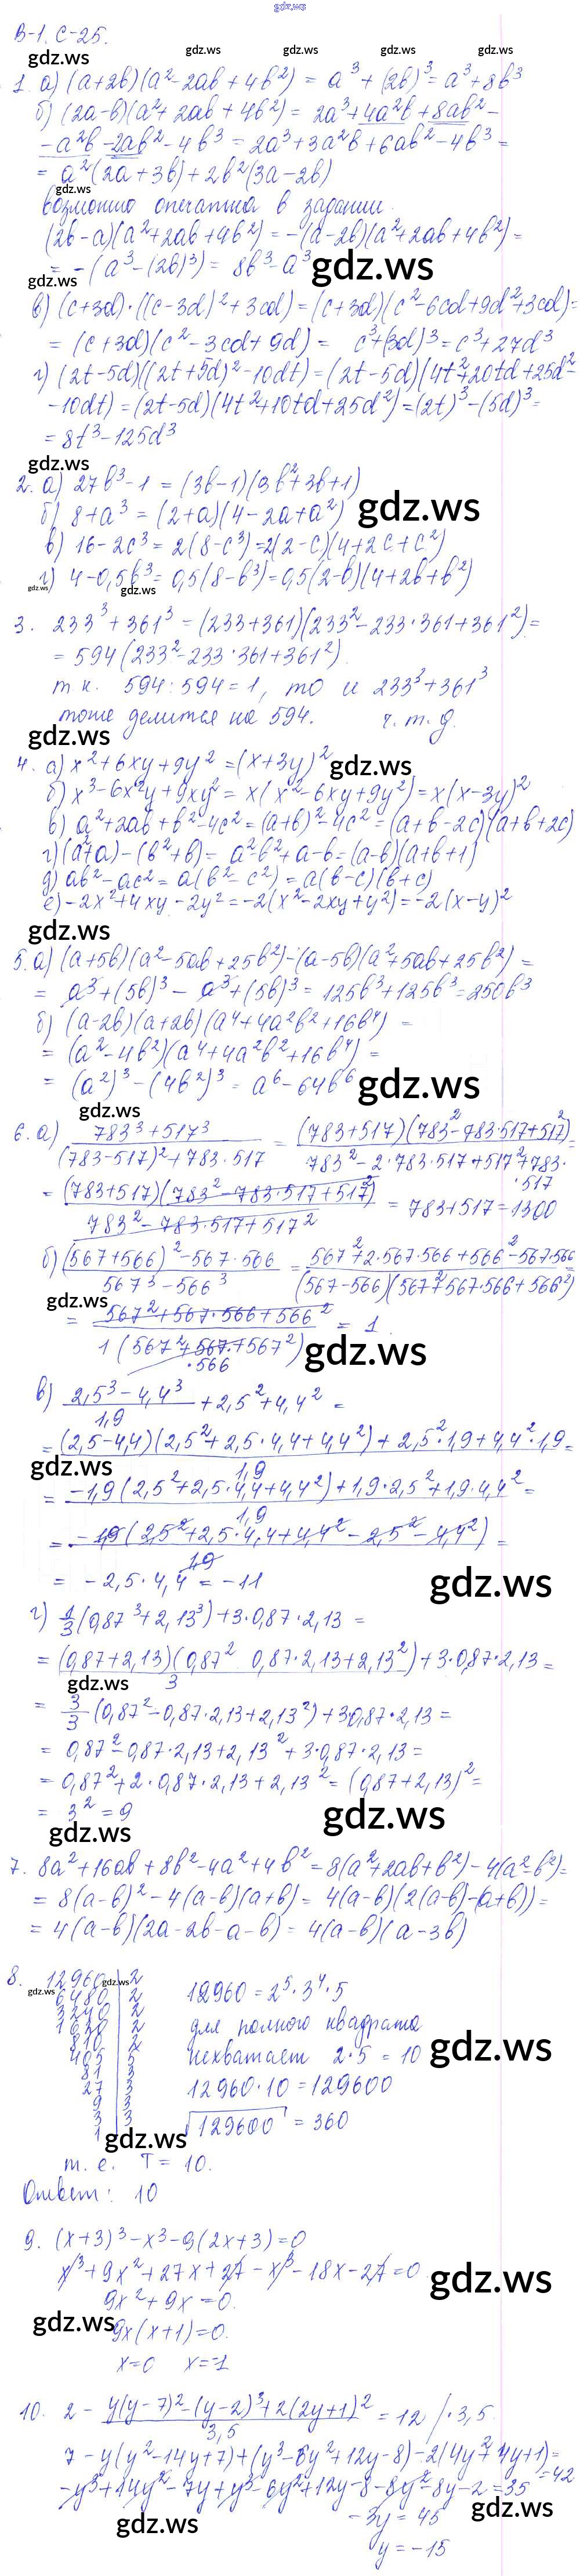 gdz.ws
В-1. С-25.
gdz.ws gdz.ws gdz.ws gdz.ws
1. а) (a+2b)(a²-2ab+4b²) = a³+(2b)³=a³+8b³
б) (2a-b)(a²+2ab+4b²)= 2a³+4a²b+8ab²-
-a²b-2ab²-4b³=2a³+3a²b+6ab²-4b³=
= a²(2a+3b)+2b²(3a-2b)
gdz.ws
возможно опечатка в задании.
(2b-a)(a²+2ab+4b²)=-(a-2b)(a²+2ab+4b²)=
= -(a³-(2b)³)= 8b³-a³
gdz.ws gdz.ws
в) (c+3d)·((c-3d)²+3cd)=(c+3d)(c²-6cd+9d²+3cd)=
= (c+3d)(c²-3cd+9d)= c³+(3d)³=c³+27d³
г) (2t-5d)((2t+5d)²-10dt)=(2t-5d)(4t²+20td+25d²-
-10dt)=(2t-5d)(4t²+10td+25d²)=(2t)³-(5d)³=
= 8t³-125d³
gdz.ws
2. а) 27b³-1 = (3b-1)(3b²+3b+1)
б) 8+a³ = (2+a)(4-2a+a²)
gdz.ws
в) 16-2c³=2(8-c³)=2(2-c)(4+2c+c²)
г) 4-0,5b³=0,5(8-b³)=0,5(2-b)(4+2b+b²)
gdz.ws gdz.ws
3. 233³+361³=(233+361)(233²-233·361+361²)=
= 594(233²-233·361+361²)
т.к. 594:594=1, то и 233³+361³
тоже делится на 594. ч.т.д.
gdz.ws
4. а) x²+6xy+9y²=(x+3y)²
gdz.ws
б) x³-6x²y+9xy²=x(x²-6xy+9y²)=x(x-3y)²
в) a²+2ab+b²-4c²=(a+b)²-4c²=(a+b-2c)(a+b+2c)
г) (a²+a)-(b²+b)= a²b²+a-b=(a-b)(a+b+1)
д) ab²-ac²=a(b²-c²)=a(b-c)(b+c)
е) -2x²+4xy-2y²=-2(x²-2xy+y²)=-2(x-y)²
gdz.ws
5. а) (a+5b)(a²-5ab+25b²)-(a-5b)(a²+5ab+25b²)=
= a³+(5b)³-a³+(5b)³=125b³+125b³=250b³
б) (a-2b)(a+2b)(a⁴+4a²b²+16b⁴) =
= (a²-4b²)(a⁴+4a²b²+16b⁴)=
= (a²)³-(4b²)³= a⁶-64b⁶
gdz.ws
gdz.ws
6. а) 783³+517³ / (783-517)²+783·517 = (783+517)(783²-783·517+517²) / 783²-2·783·517+517²+783·517 =
= (783+517)(783²-783·517+517²) / 783²-783·517+517² = 783+517=1300
б) (567+566)²-567·566 / 567³-566³ = 567²+2·567·566+566²-567·566 / (567-566)(567²+567·566+566²) =
gdz.ws
= 567²+567·566+566² / 1(567²+567·566+567²) = 1
gdz.ws
в) 2,5³-4,4³ / 1,9 + 2,5²+4,4² =
= (2,5-4,4)(2,5²+2,5·4,4+4,4²)+2,5²·1,9+4,4²·1,9 / 1,9 =
gdz.ws
= -1,9(2,5²+2,5·4,4+4,4²)+1,9·2,5²+1,9·4,4² / 1,9 =
= -1,9(2,5²+2,5·4,4+4,4²-2,5²-4,4²) / 1,9 =
= -2,5·4,4=-11
gdz.ws
г) 1/3(0,87³+2,13³)+3·0,87·2,13 =
= (0,87+2,13)(0,87² 0,87·2,13+2,13²) / 3 +3·0,87·2,13=
gdz.ws
= 3/3(0,87²-0,87·2,13+2,13²)+3·0,87·2,13=
= 0,87²-0,87·2,13+2,13²+3·0,87·2,13=
= 0,87²+2·0,87·2,13+2,13²=(0,87+2,13)²=
= 3²=9
gdz.ws
gdz.ws
7. 8a²+16ab+8b²-4a²+4b²=8(a²+2ab+b²)-4(a²-b²)=
= 8(a-b)²-4(a-b)(a+b)= 4(a-b)(2(a-b)-(a+b))=
= 4(a-b)(2a-2b-a-b)= 4(a-b)(a-3b)
8. 12960 | 2
gdz.ws gdz.ws
6480 | 2 12960=2⁵·3⁴·5
3240 | 2
1620 | 2 для полного квадрата
810 | 2
405 | 5 нехватает 2·5=10
gdz.ws
81 | 3
27 | 3 12960·10=129600
9 | 3
3 | 3 √129600 = 360
1
gdz.ws
т.е. Т=10.
Ответ: 10
9. (x+3)³-x³-9(2x+3)=0
x³+9x²+27x+27-x³-18x-27=0
gdz.ws
9x²+9x=0.
gdz.ws
9x(x+1)=0.
x=0 x=-1
10. 2 - y(y-7)²-(y-2)³+2(2y+1)² / 3,5 = 12 /·3,5
7-y(y²-14y+7)+(y³-6y²+12y-8)-2(4y²+4y+1)=
=42
-y³+14y²-7y+y³-6y²+12y-8-8y²-8y-2=35
gdz.ws
-3y=45
gdz.ws
y=-15